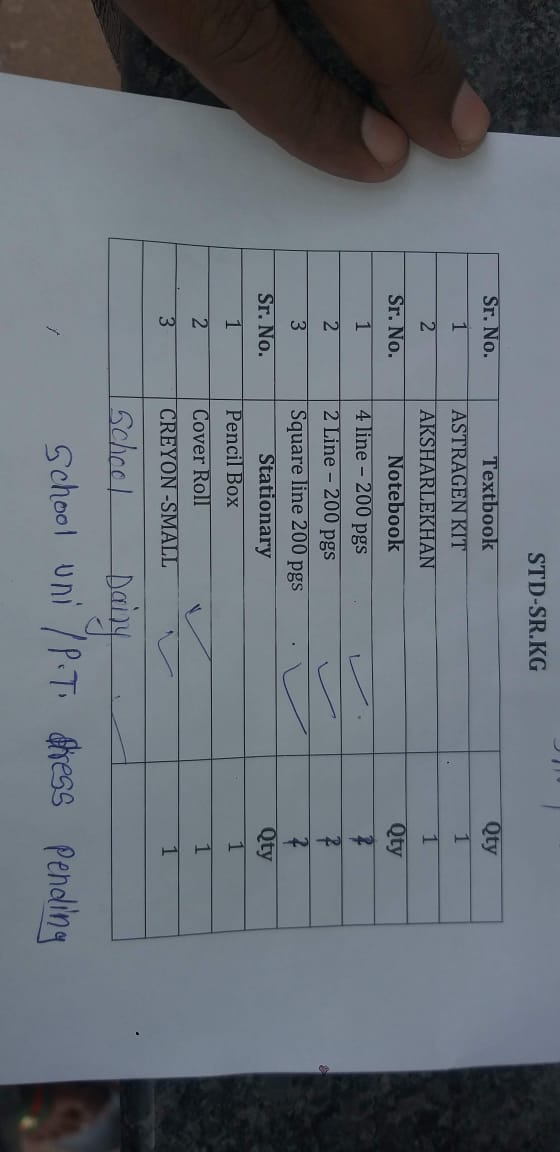 STD-SR.KG
Sr. No. Textbook Qty
1 ASTRAGEN KIT 1
2 AKSHARLEKHAN 1
Sr. No. Notebook Qty
1 4 line – 200 pgs
2 2 Line – 200 pgs
3 Square line 200 pgs
Sr. No. Stationary Qty
1 Pencil Box 1
2 Cover Roll 1
3 CREYON -SMALL 1
School Dairy
School uni / P.T. dress pending